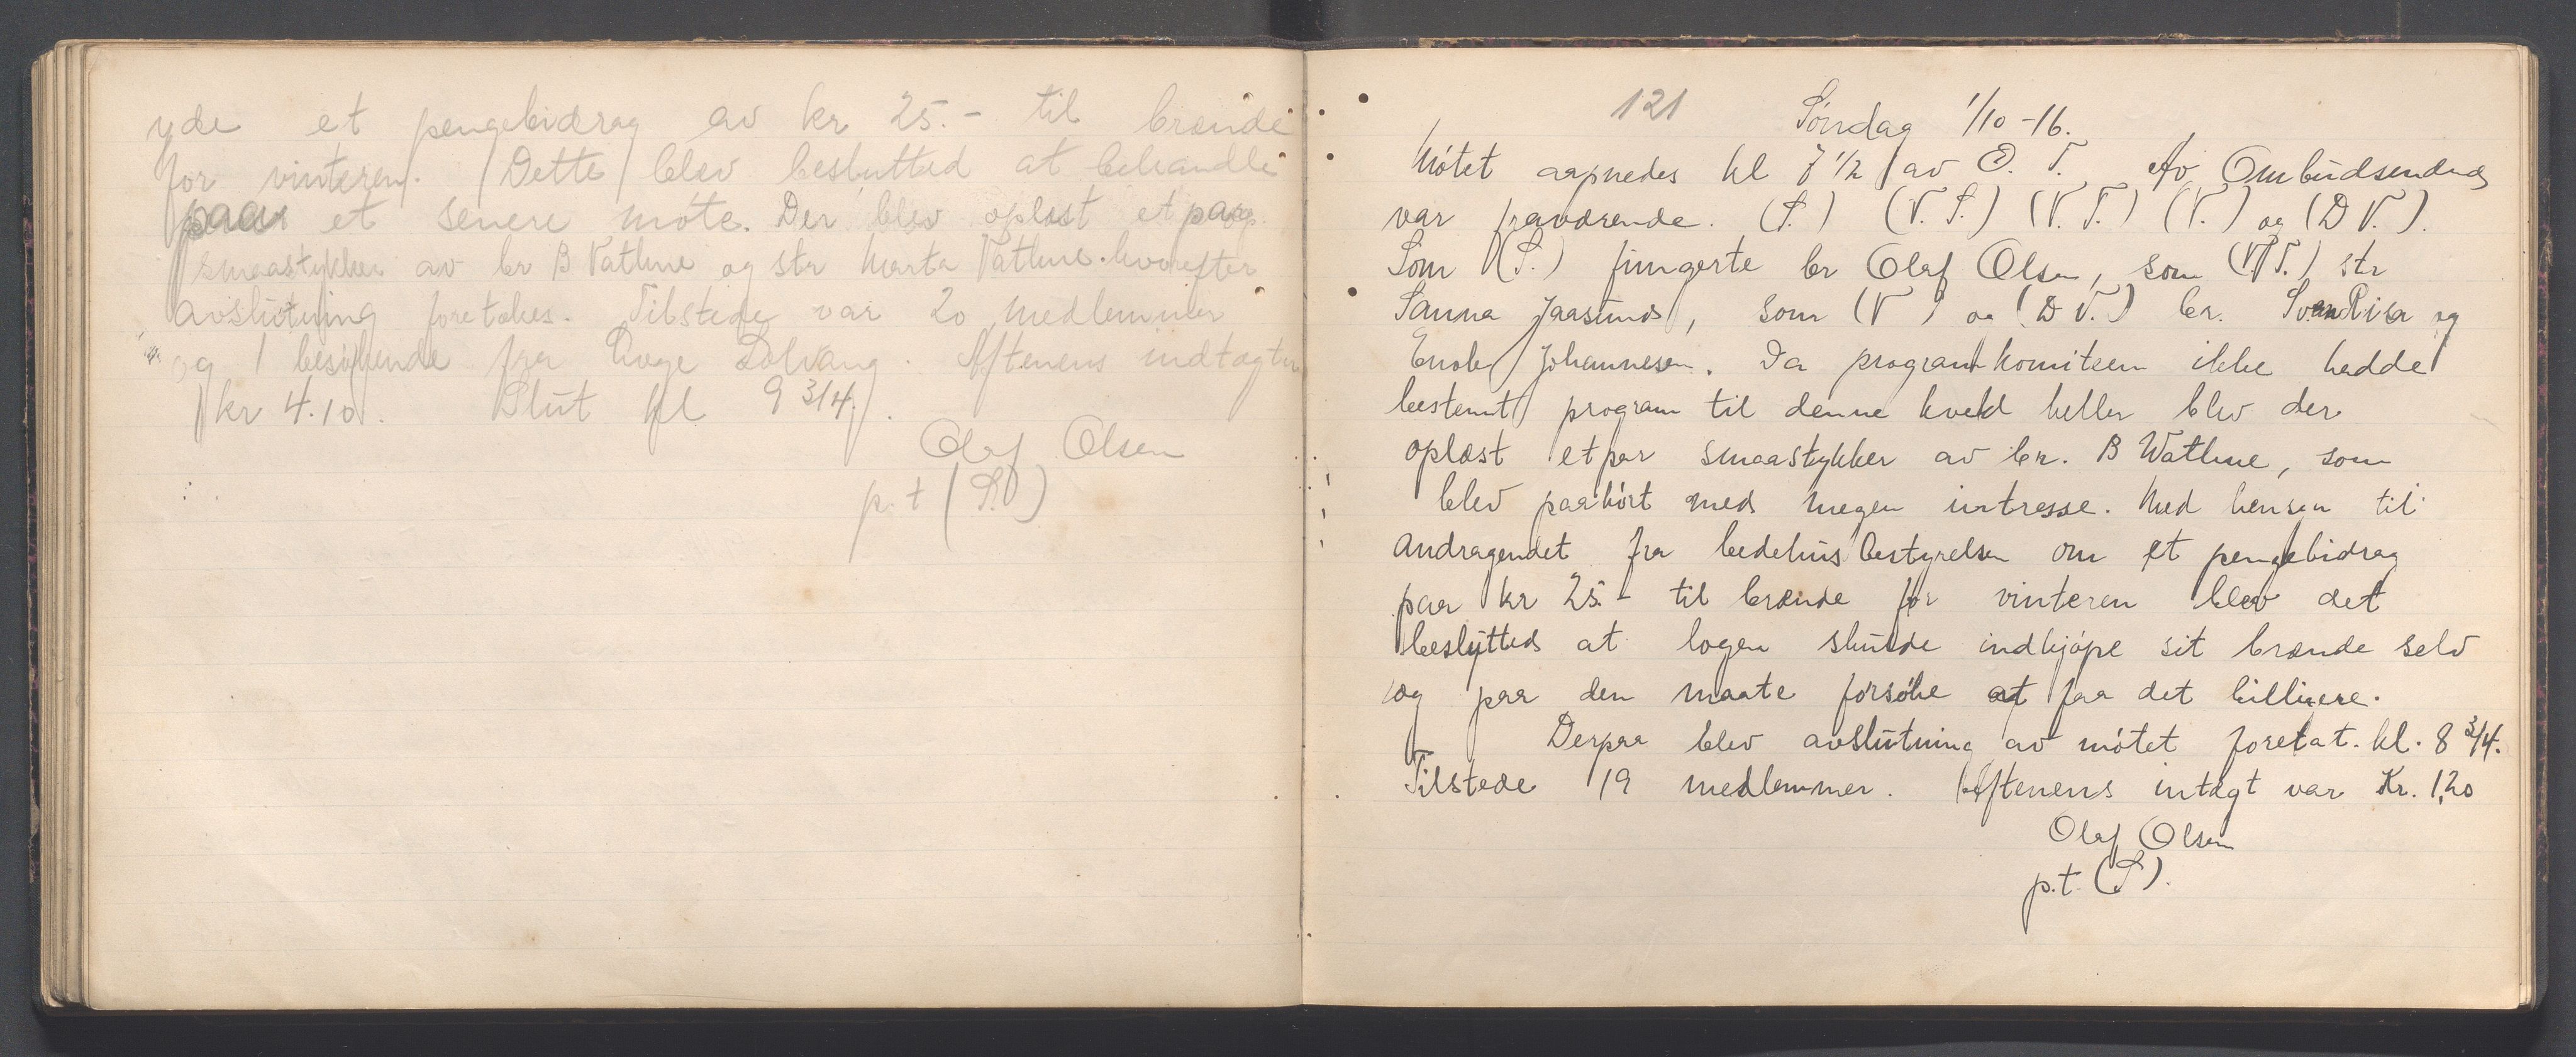 yde et pengebidrag av kr 25.- til brænde
for vinteren. Dette blev beslutted at behandle
paa et senere møte. Der blev oplæst et par
smaastykker av br B Vathne og str Marta Vathne. hvorefter
avslutning foretakes. Tilstede var 20 medlemmer
og 1 besøkende fra Loge Solvang. Aftenens indtægter
kr 4.10. Slut kl 9 3/4.
Olaf Olsen
p.t (S.)
121 Søndag 1/10-16.
Møtet aapnedes kl 7 1/2 av O. T. Av Ombudsendnæ
var fraværende. (S.) (V. S.) (V. T.) (V.) og (D V.).
Som (S.) fungerte br Olaf Olsen, som (V. T.) str
Sanna Jaasunds, som (V) og (D V.) br. Sven Risa og
Enok Johannesen. Da programkomiteen ikke hadde
bestemt program til denne kveld heller blev der
oplæst et par smaastykker av br. B Wathne, som
blev paahørt med megen intresse. Med hensyn til
Andragendet fra bedehusbestyrelsen om et pengebidrag
paa kr 25.- til brænde for vinteren blev det
beslutted at logen skulde indkjøpe sit brænde selv
og paa den maate forsøke at faa det billigere.
Derpaa blev avslutning av møtet foretat. kl. 8 3/4.
Tilstede 19 medlemmer. Aftenens intægt var Kr. 1,20
Olaf Olsen
p.t. (S).